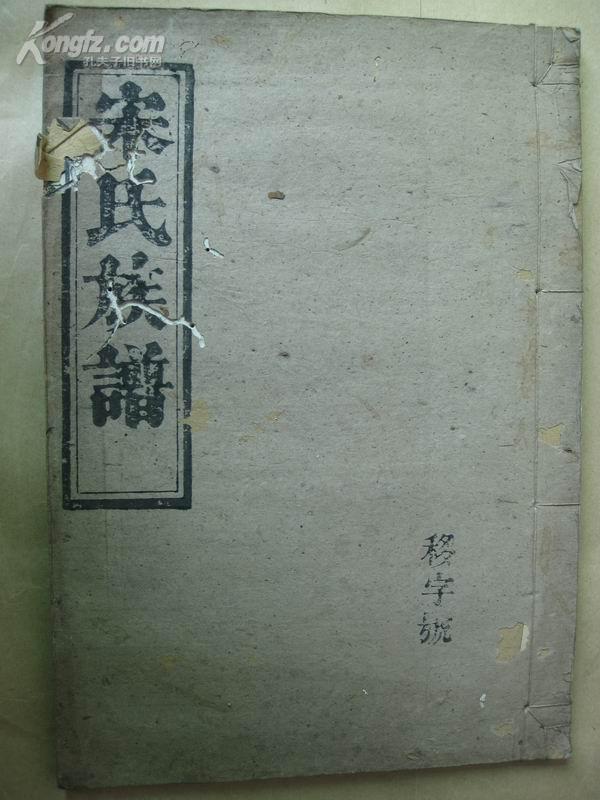 Kongfz.com
孔夫子旧书网
宋氏族譜
移字號